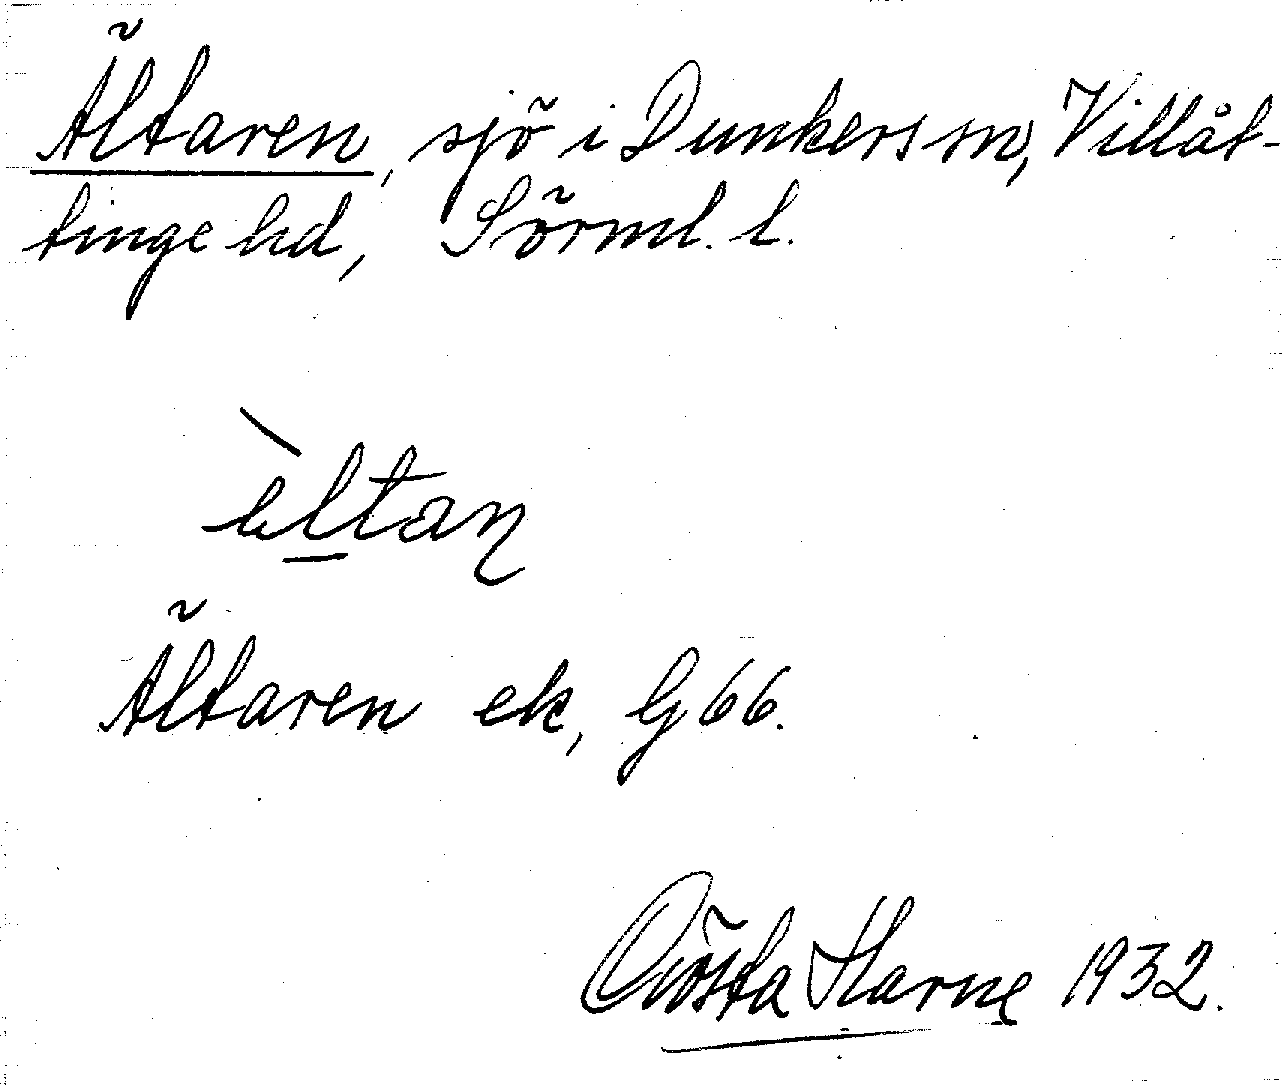 Ältaren, sjö i Dunkers sn, Villåt-
tinge hd, Sörml. l.
Ältaren ek, G 66.
Gösta 1932.